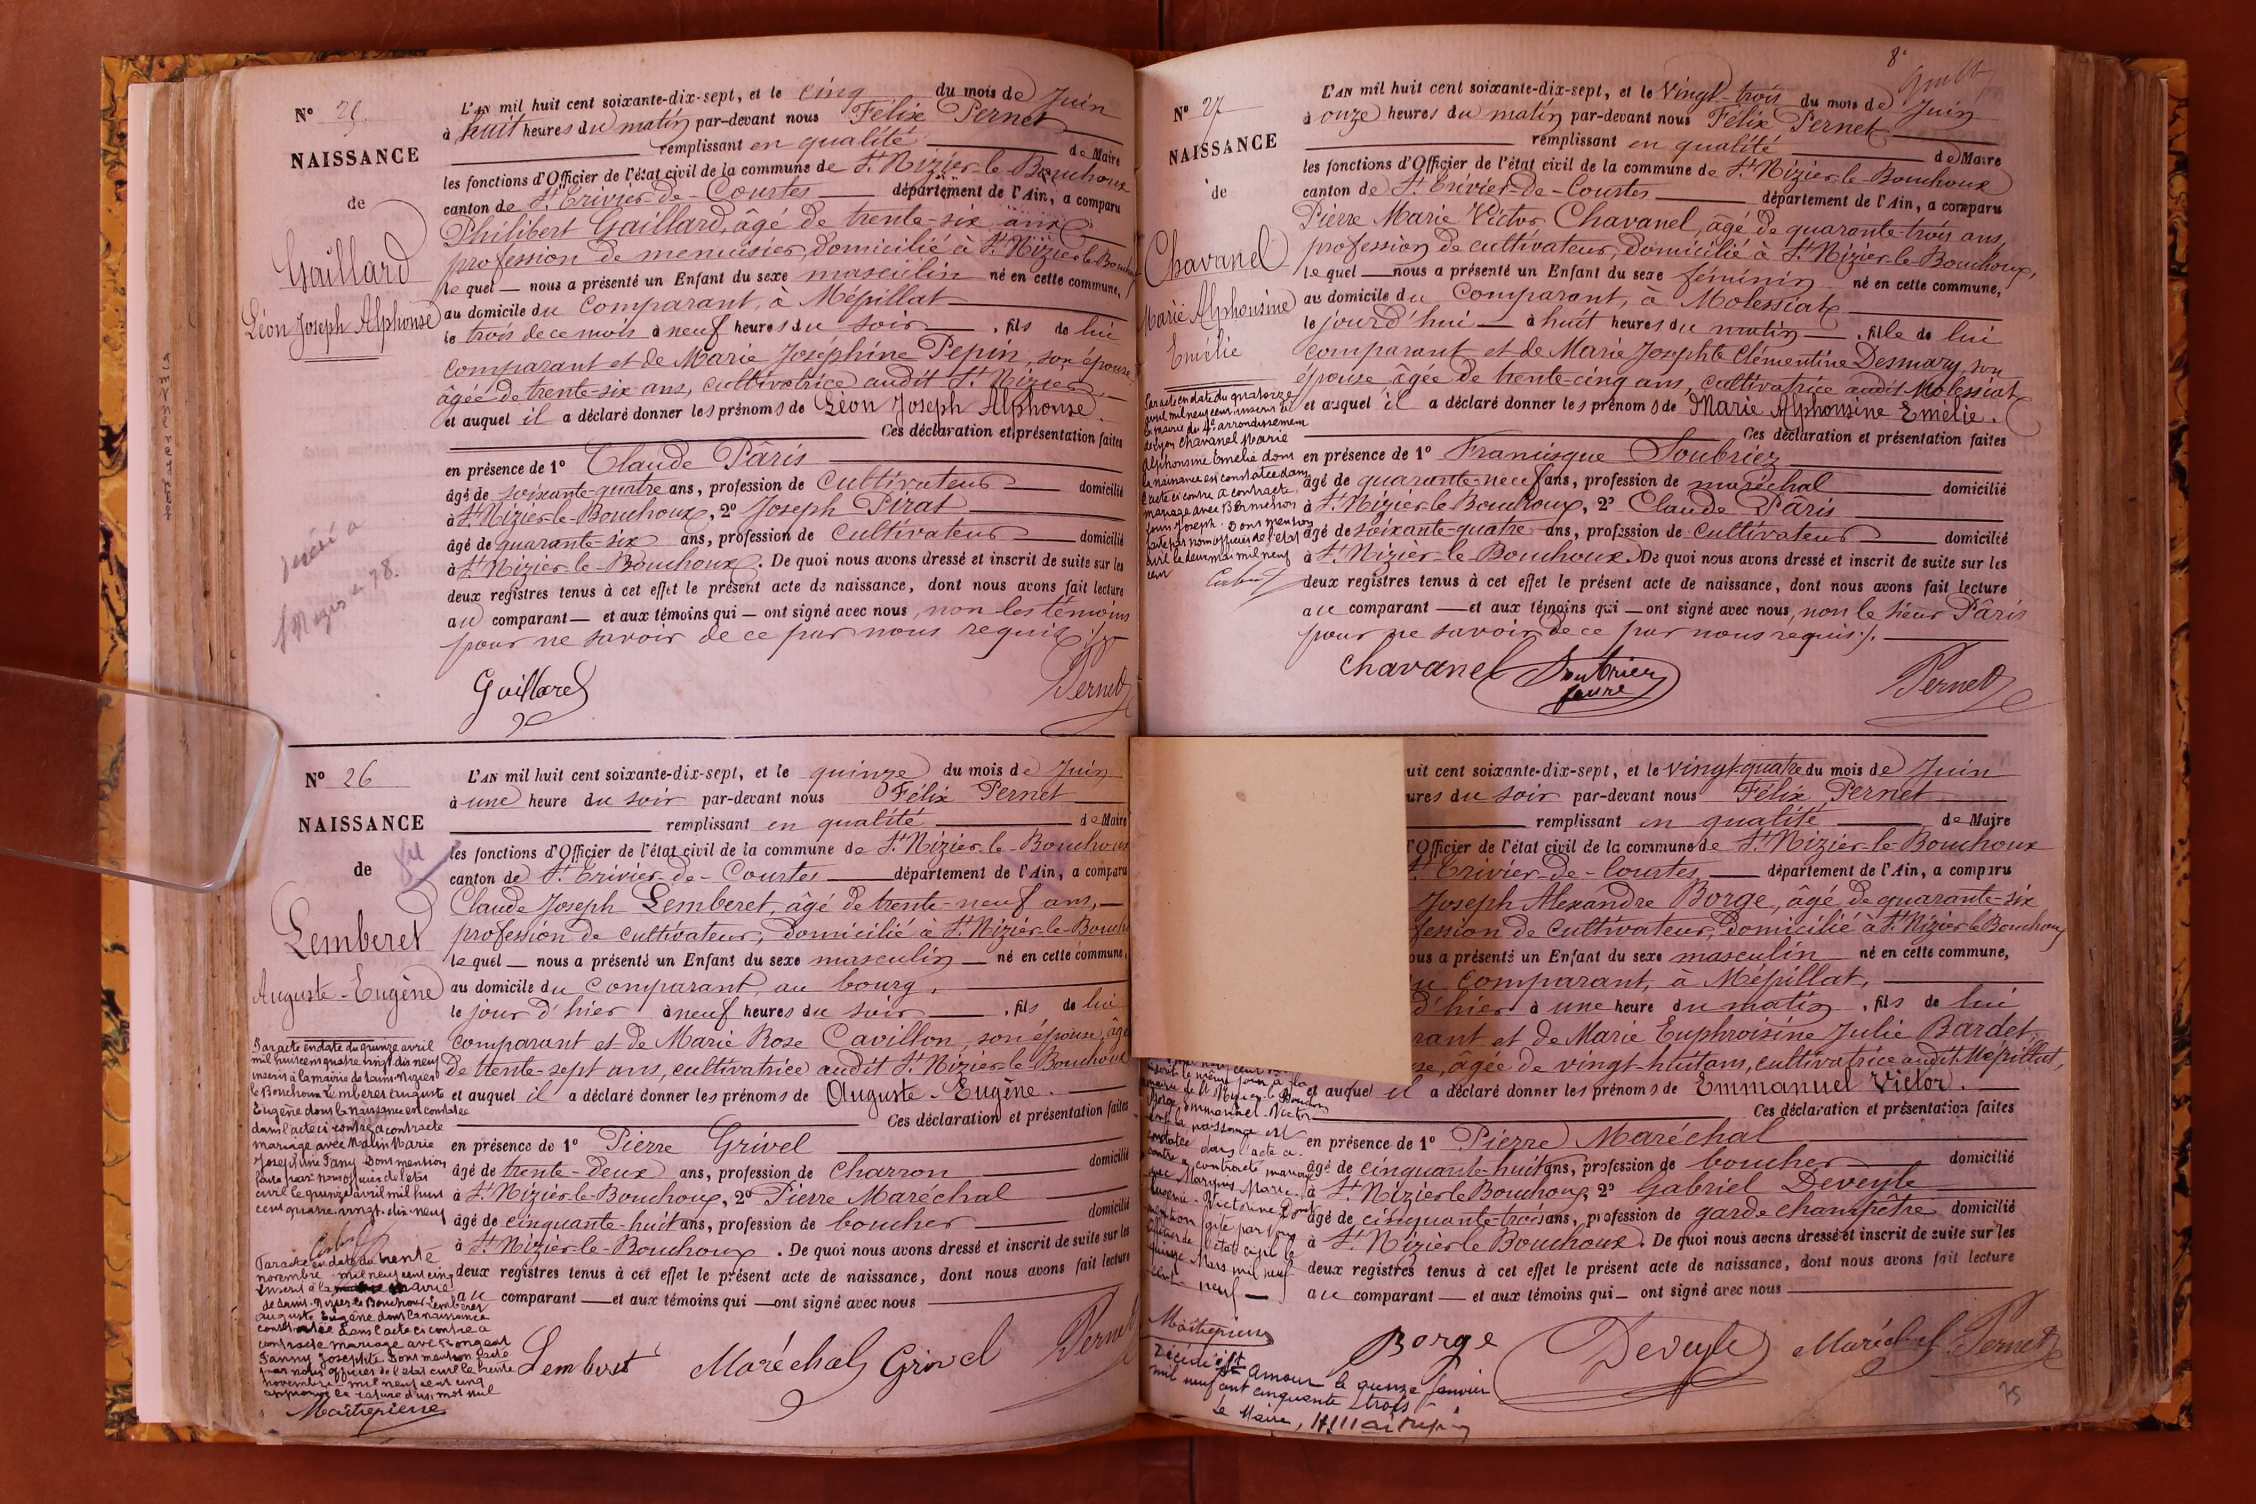 Nº 25.
NAISSANCE
de
Gaillard
Léon Joseph Alphonse
L'AN mil huit cent soixante-dix-sept, et le cinq du mois de Juin
à huit heures du matin par-devant nous Félix Pernet
remplissant en qualité de Maire
les fonctions d'Officier de l'état civil de la commune de St Nizier-le-Bouchoux
canton de St Trivier-de-Courtes département de l'Ain, a comparu
Philibert Gaillard, âgé de trente-six ans
profession de menuisier, domicilié à St Nizier-le-Bouchoux
lequel nous a présenté un Enfant du sexe masculin né en cette commune,
au domicile du comparant, à Mépillat
le trois de ce mois à neuf heures du soir, fils de lui
comparant et de Marie Joséphine Pepin, son épouse,
âgée de trente-six ans, cultivatrice audit St Nizier,
et auquel il a déclaré donner les prénoms de Léon Joseph Alphonse.
Ces déclaration et présentation faites
en présence de 1º Claude Pâris
âgé de soixante-quatre ans, profession de cultivateur domicilié
à St Nizier-le-Bouchoux, 2º Joseph Pirat
âgé de quarante-six ans, profession de cultivateur domicilié
à St Nizier-le-Bouchoux. De quoi nous avons dressé et inscrit de suite sur les
deux registres tenus à cet effet le présent acte de naissance, dont nous avons fait lecture
au comparant et aux témoins qui ont signé avec nous, non les témoins
pour ne savoir de ce par nous requis
Gaillard
Pernet
Nº 26
NAISSANCE
de
Lemberet
Auguste-Eugène
L'AN mil huit cent soixante-dix-sept, et le quinze du mois de Juin
à une heure du soir par-devant nous Félix Pernet
remplissant en qualité de Maire
les fonctions d'Officier de l'état civil de la commune de St Nizier-le-Bouchoux
canton de St Trivier-de-Courtes département de l'Ain, a comparu
Claude Joseph Lemberet, âgé de trente-neuf ans,
profession de cultivateur, domicilié à St Nizier-le-Bouch
lequel nous a présenté un Enfant du sexe masculin né en cette commune,
au domicile du comparant, au bourg,
le jour d'hier à neuf heures du soir, fils de lui
comparant et de Marie Rose Cavillon, son épouse, âgé
de trente-sept ans, cultivatrice audit St Nizier-le-Bouchoux
et auquel il a déclaré donner les prénoms de Auguste-Eugène.
Ces déclaration et présentation faites
en présence de 1º Pierre Grivel
âgé de trente-deux ans, profession de charron domicilié
à St Nizier-le-Bouchoux, 2º Pierre Maréchal
âgé de cinquante-huit ans, profession de boucher domicilié
à St Nizier-le-Bouchoux. De quoi nous avons dressé et inscrit de suite sur les
deux registres tenus à cet effet le présent acte de naissance, dont nous avons fait lecture
au comparant et aux témoins qui ont signé avec nous
Lemberet Maréchal Grivel Pernet
Par acte en date du quinze avril
mil huit cent quatre vingt dix neuf
inscrit à la mairie de Saint-Nizier
le Bouchoux Lemberet Auguste
Eugène dont la naissance est constatée
dans l'acte ci contre a contracté
mariage avec Malin Marie
Joséphine Fany. Dont mention
faite par nous officier de l'état
civil le quinze avril mil huit
cent quatre-vingt-dix-neuf
Par acte en date du trente
novembre mil neuf cent cinq
inscrit à la mairie
de Saint-Nizier-le-Bouchoux Lemberet
Auguste Eugène dont la naissance
est constatée dans l'acte ci contre a
contracté mariage avec Rongeat
Fanny Josephte. Dont mention faite
par nous officier de l'état civil le trente
novembre mil neuf cent cinq
approuvé la rature d'un mot nul
Maitrepierre
8.
Nº 27
NAISSANCE
de
Chavanel
Marie Alphonsine
Emélie
L'AN mil huit cent soixante-dix-sept, et le vingt-trois du mois de Juin
à onze heures du matin par-devant nous Félix Pernet
remplissant en qualité de Maire
les fonctions d'Officier de l'état civil de la commune de St Nizier-le-Bouchoux
canton de St Trivier-de-Courtes département de l'Ain, a comparu
Pierre Marie Victor Chavanel, âgé de quarante-trois ans,
profession de cultivateur, domicilié à St Nizier-le-Bouchoux,
lequel nous a présenté un Enfant du sexe féminin né en cette commune,
au domicile du comparant, à Molessiat
le jourd'hui à huit heures du matin, fille de lui
comparant et de Marie Josephte Clémentine Desmary, son
épouse, âgée de trente-cinq ans, cultivatrice audit Molessiat
et auquel il a déclaré donner les prénoms de Marie Alphonsine Emélie.
Ces déclaration et présentation faites
en présence de 1º Francisque Soubriez
âgé de quarante-neuf ans, profession de maréchal domicilié
à St Nizier-le-Bouchoux, 2º Claude Pâris
âgé de soixante-quatre ans, profession de cultivateur domicilié
à St Nizier-le-Bouchoux. De quoi nous avons dressé et inscrit de suite sur les
deux registres tenus à cet effet le présent acte de naissance, dont nous avons fait lecture
au comparant et aux témoins qui ont signé avec nous, non le sieur Pâris
pour ne savoir de ce par nous requis.
Chavanel Soubrier Pernet
jeune
Par acte en date du quatorze
avril mil neuf cent, inscrit à
la mairie du 4e arrondissement
de Lyon Chavanel Marie
Alphonsine Emélie dont
la naissance est constatée dans
l'acte ci contre a contracté
mariage avec
Joseph. Dont mention
faite par nous officier de l'état
civil le deux mai mil neuf
cent
uit cent soixante-dix-sept, et le vingt-quatre du mois de Juin
ures du soir par-devant nous Félix Pernet
remplissant en qualité de Maire
l'Officier de l'état civil de la commune de St Nizier-le-Bouchoux
St Trivier-de-Courtes département de l'Ain, a comparu
Joseph Alexandre Borge, âgé de quarante-six
fession de cultivateur, domicilié à St Nizier-le-Bouchoux
ous a présenté un Enfant du sexe masculin né en cette commune,
u comparant, à Mépillat,
d'hier à une heure du matin, fils de lui
rant et de Marie Euphroisine Julie Bardet,
se, âgée de vingt-huit ans, cultivatrice audit Mépillat,
et auquel il a déclaré donner les prénoms de Emmanuel Victor.
Ces déclaration et présentation faites
en présence de 1º Pierre Maréchal
âgé de cinquante-huit ans, profession de boucher domicilié
à St Nizier-le-Bouchoux, 2º Gabriel Deveyle
âgé de cinquante-trois ans, profession de garde champêtre domicilié
à St Nizier-le-Bouchoux. De quoi nous avons dressé et inscrit de suite sur les
deux registres tenus à cet effet le présent acte de naissance, dont nous avons fait lecture
au comparant et aux témoins qui ont signé avec nous
Borge Deveyle Maréchal Pernet
inscrit le même jour à la
mairie de St Nizier-le-Bouchoux
Borge Emmanuel Victor
dont la naissance est
constatée dans l'acte ci-
contre a contracté mariage
avec Marquis Marie
Eugénie-Victorine. Dont
mention faite par nous
officier de l'état civil le
quinze Mars mil neuf
cent neuf
Maitrepierre
Décédé à St Amour le quinze Janvier
mil neuf cent cinquante trois
Le Maire,
75